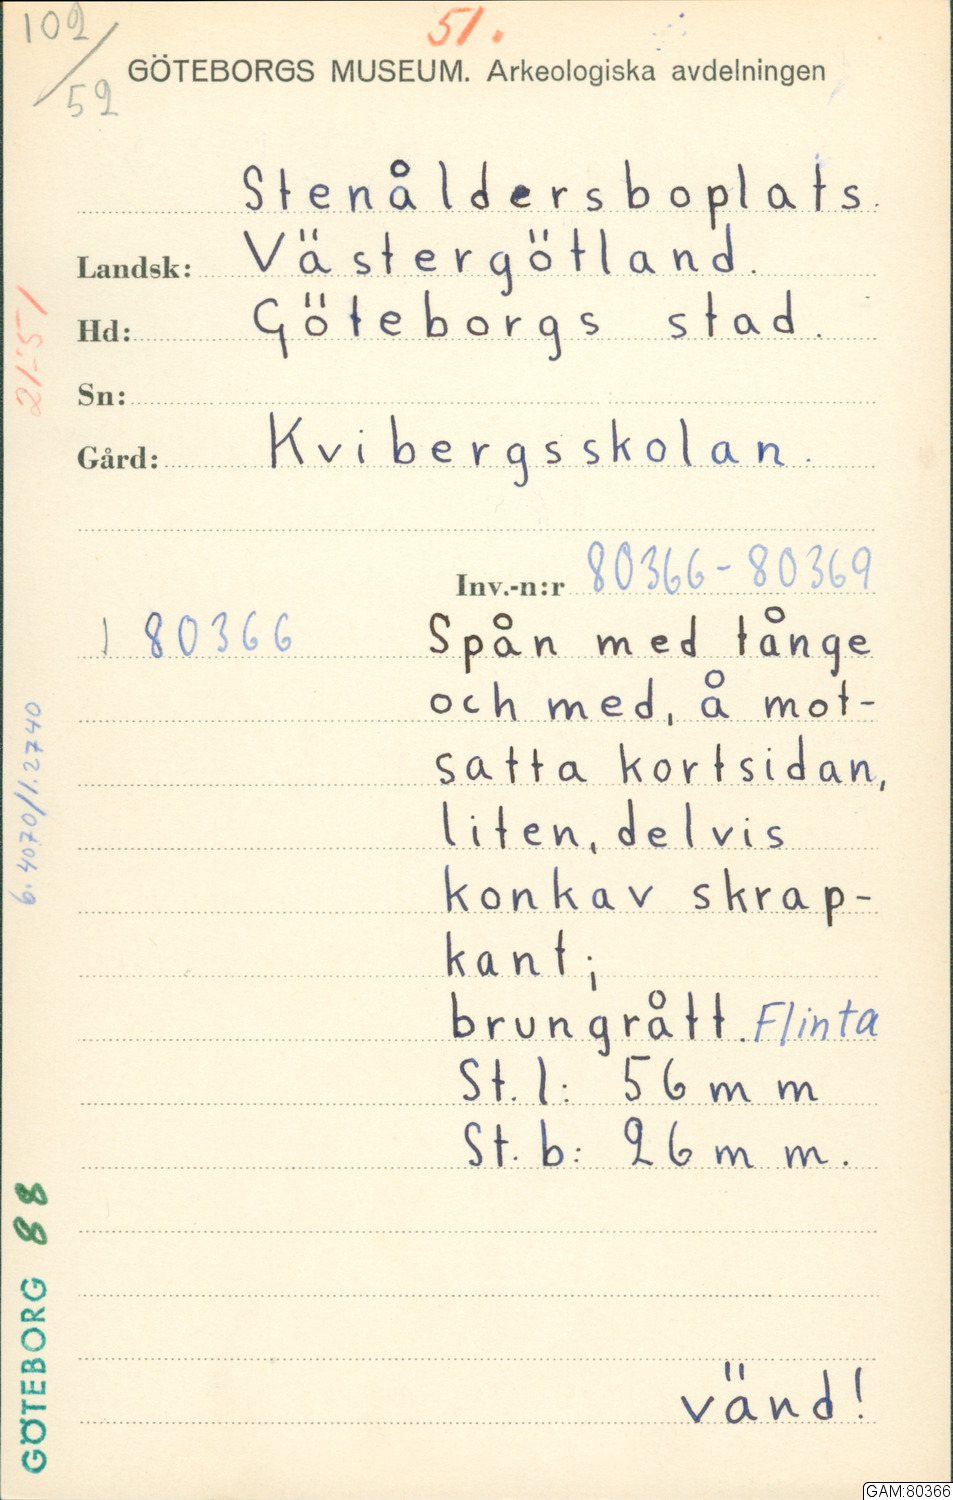 102/52
51.
GÖTEBORGS MUSEUM. Arkeologiska avdelningen
Stenåldersboplats.
Landsk: Västergötland.
Hd: Göteborgs stad.
Sn:
Gård: Kvibergsskolan.
Inv.-n:r 80366-80369
1 80366 Spån med tånge
och med, å mot-
satta kortsidan,
liten, delvis
konkav skrap-
kant;
brungrått. Flinta
St. l: 56 mm
St. b: 26 mm.
vänd!
21-51
6.4070/1.2740
GÖTEBORG 88
GAM:80366